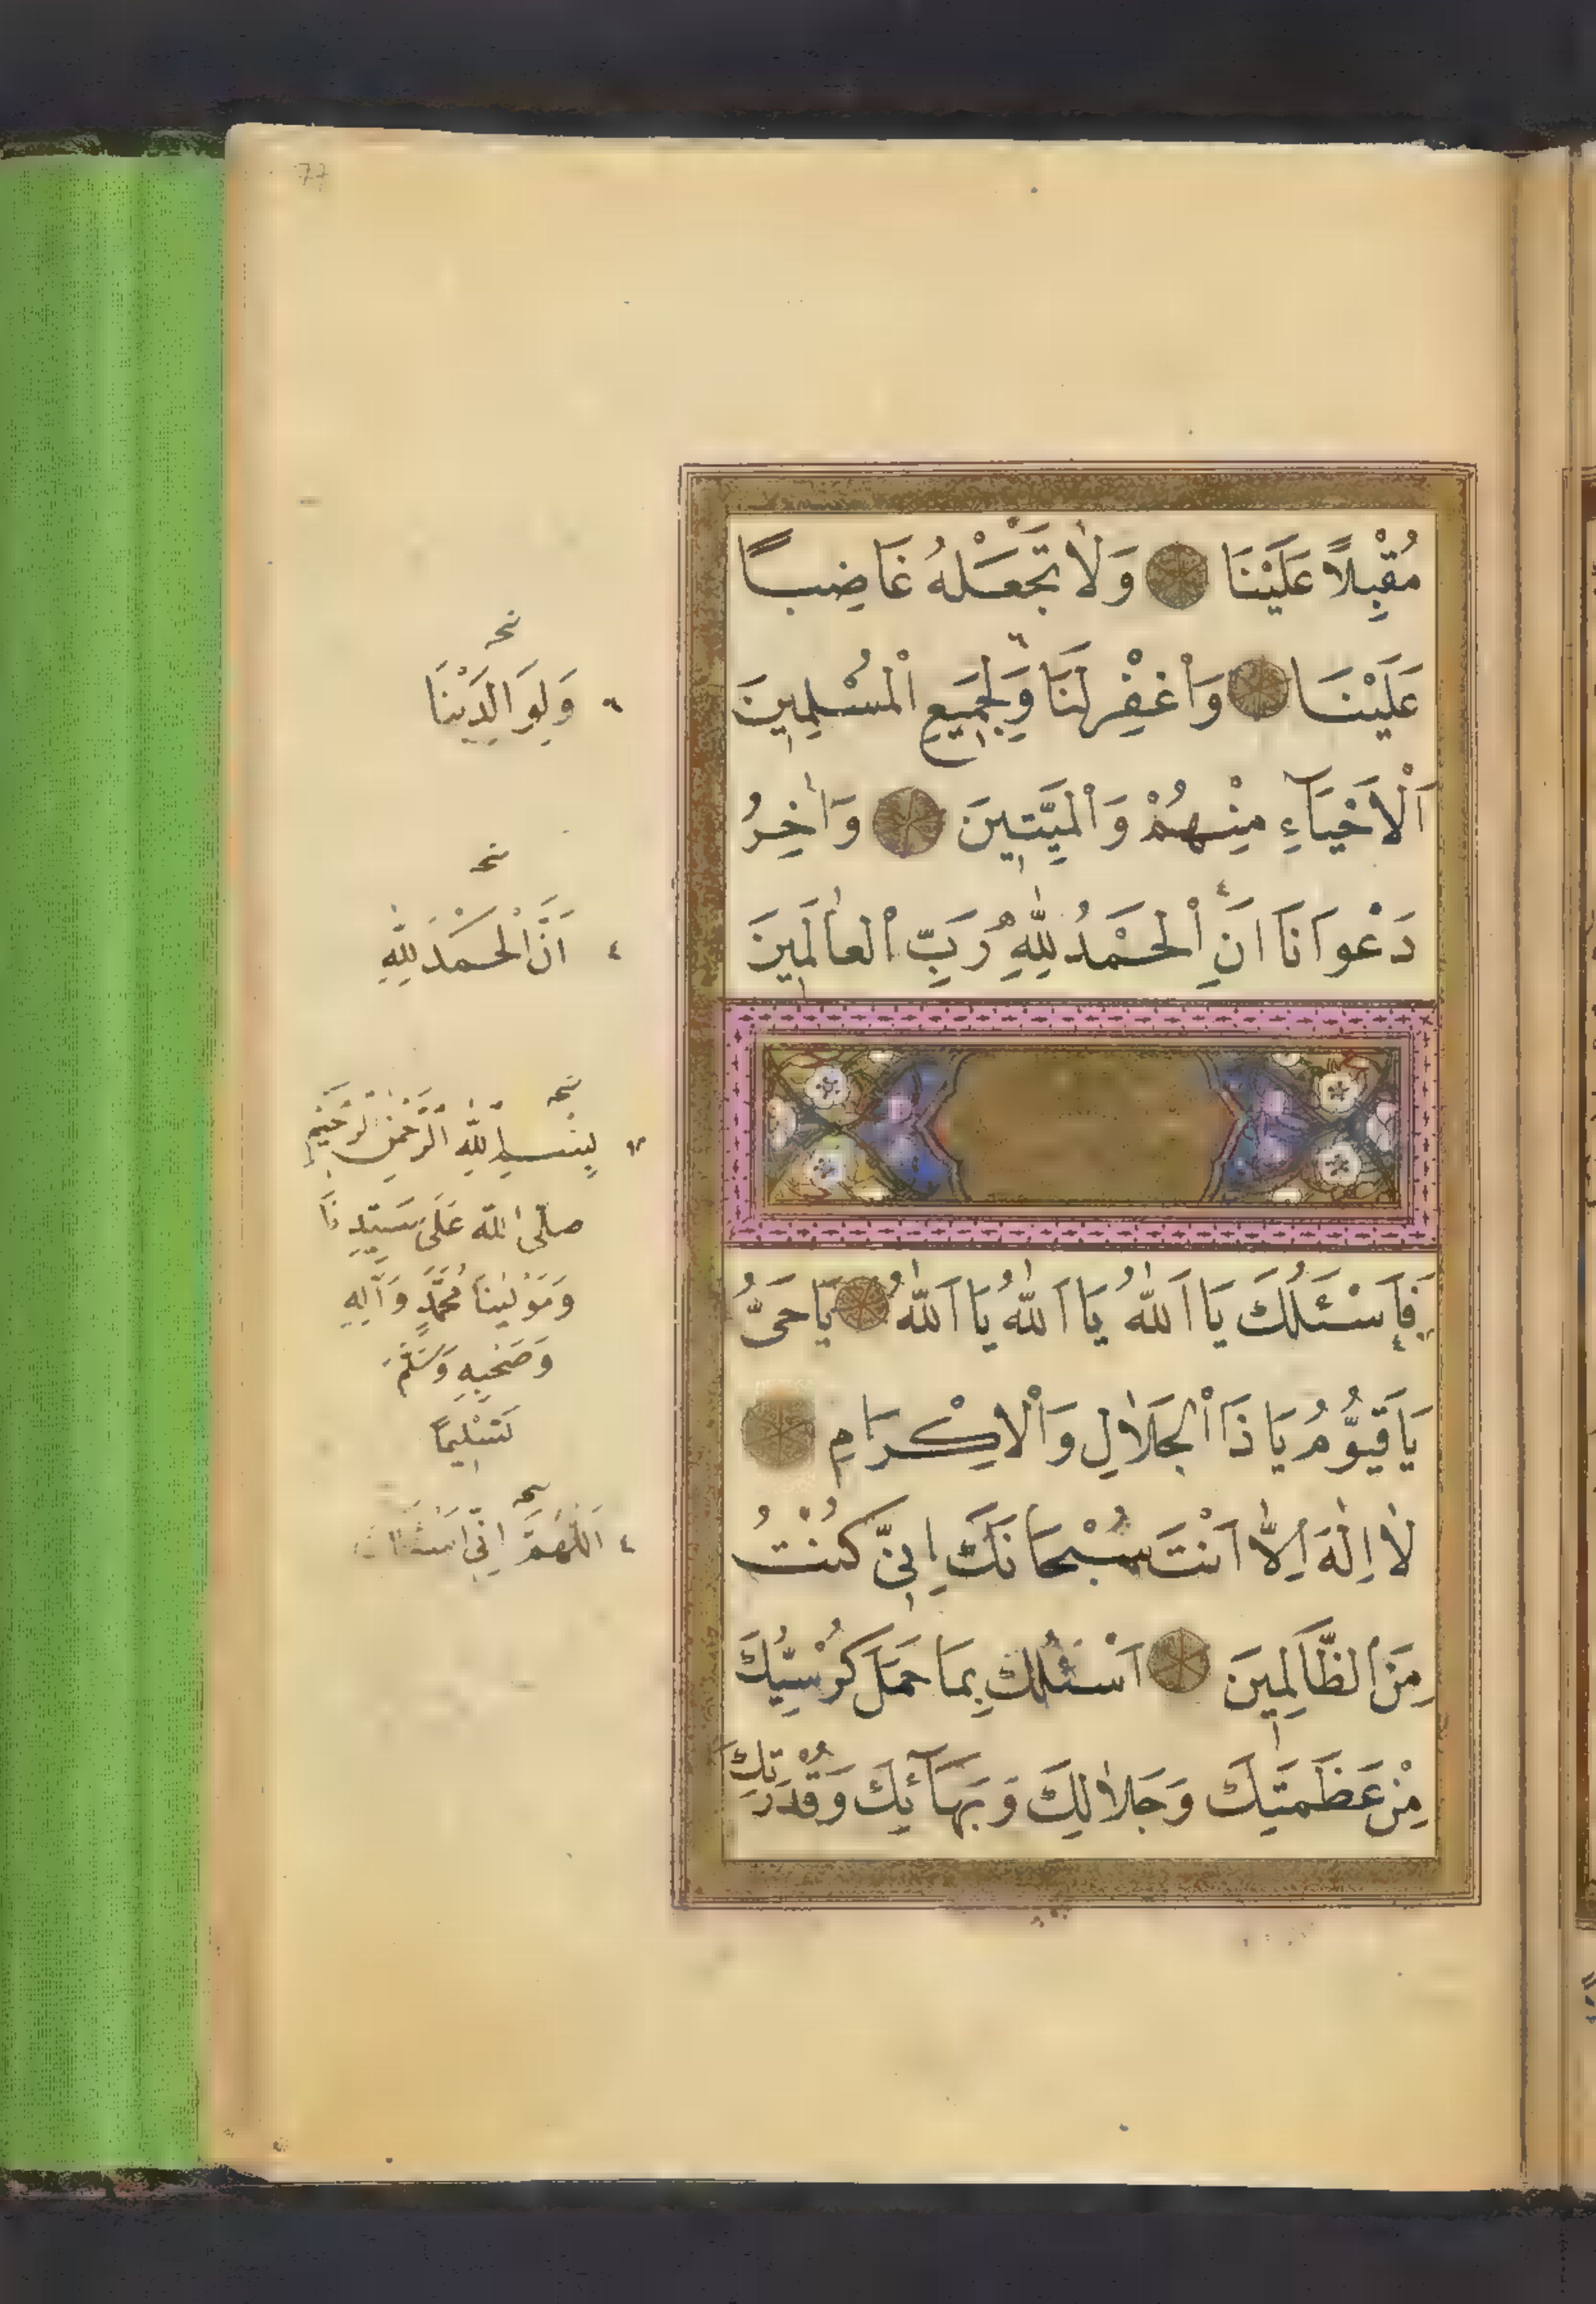 77
مُقْبِلًا عَلَيْنَا وَلَا تَجْعَلْهُ غَاضِبًا
عَلَيْنَا وَاغْفِرْ لَنَا وَلِجَمِيعِ الْمُسْلِمِينَ
اَلْاَحْيَاءِ مِنْهُمْ وَالْمَيِّتِينَ وَاٰخِرُ
دَعْوَانَا اَنِ الْحَمْدُ لِلّٰهِ رَبِّ الْعَالَمِينَ
فَاِسْئَلُكَ يَا اَللّٰهُ يَا اَللّٰهُ يَا اَللّٰهُ يَا حَىُّ
يَا قَيُّومُ يَا ذَا الْجَلَالِ وَالْاِكْرَامِ
لَا اِلٰهَ اِلَّا اَنْتَ سُبْحَانَكَ اِنِّى كُنْتُ
مِنَ الظَّالِمِينَ اَسْئَلُكَ بِمَا حَمَلَ كُرْسِيُّكَ
مِنْ عَظَمَتِكَ وَجَلَالِكَ وَبَهَائِكَ وَقُدْرَتِكَ
وَلِوَالِدَيْنَا
اَنَّ الْحَمْدَ لِلّٰهِ
بِسْمِ اللّٰهِ الرَّحْمٰنِ الرَّحِيمِ
صلى الله عَلَى سَيِّدِنَا
وَمَوْلٰينَا مُحَمَّدٍ وَآلِهِ
وَصَحْبِهِ وَسَلَّمَ
تَسْلِيمًا
اَللّٰهُمَّ اِنِّى اَسْئَلُكَ